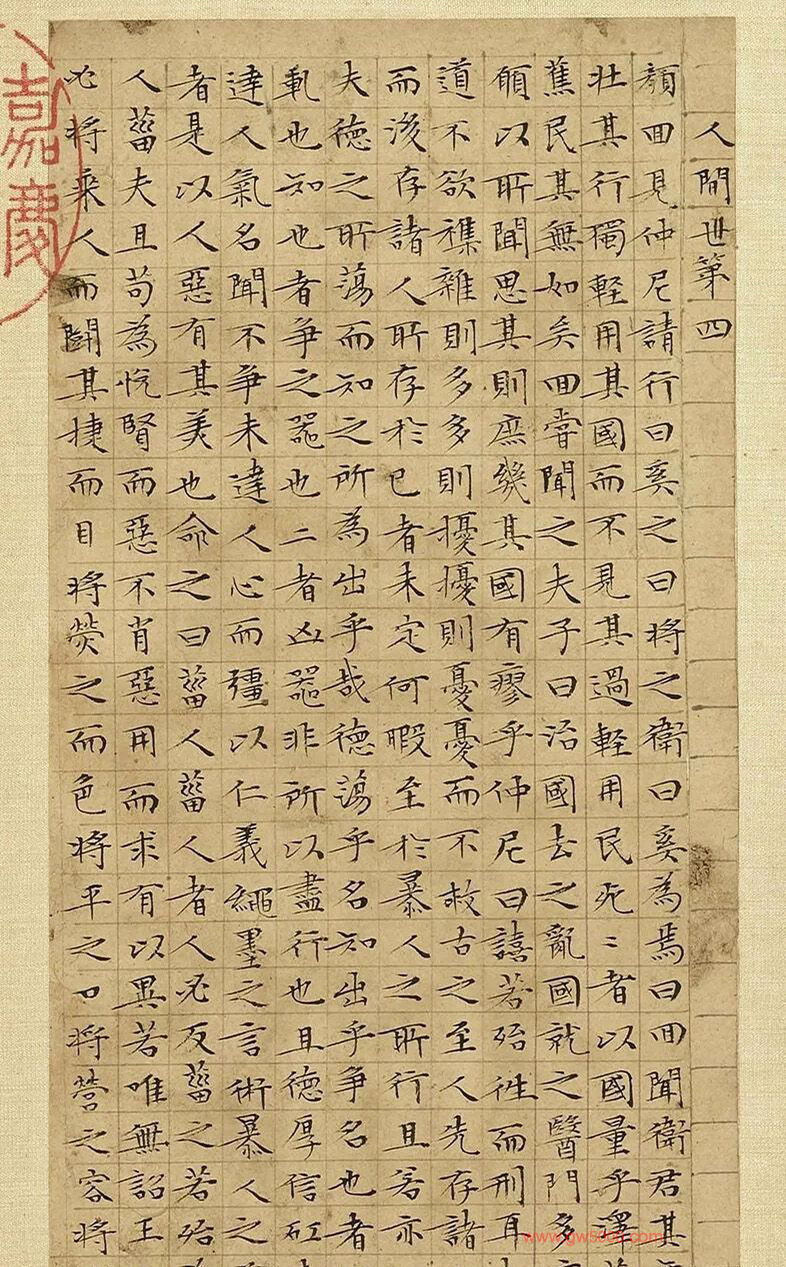 人間世第四
顏囬見仲尼請行曰奚之曰將之衛曰奚為焉曰囬聞衛君其
壯其行獨輕用其國而不見其過輕用民死〻者以國量乎澤
蕉民其無如矣囬嘗聞之夫子曰治國去之亂國就之醫門多
願以所聞思其則庶幾其國有瘳乎仲尼曰譆若殆徃而刑耳
道不欲襍雜則多多則擾擾則憂憂而不救古之至人先存諸
而後存諸人所存於已者未定何暇至於暴人之所行且若亦
夫德之所蕩而知之所為出乎哉德蕩乎名知出乎爭名也者
軋也知也者爭之器也二者凶器非所以盡行也且德厚信矼
達人氣名聞不爭未達人心而彊以仁義繩墨之言術暴人之
者是以人惡有其美也命之曰菑人菑人者人必反菑之若殆
人菑夫且苟為悅賢而惡不肖惡用而求有以異若唯無詔王
必將乘人而鬭其捷而目將熒之而色將平之口將營之容將
嘉慶